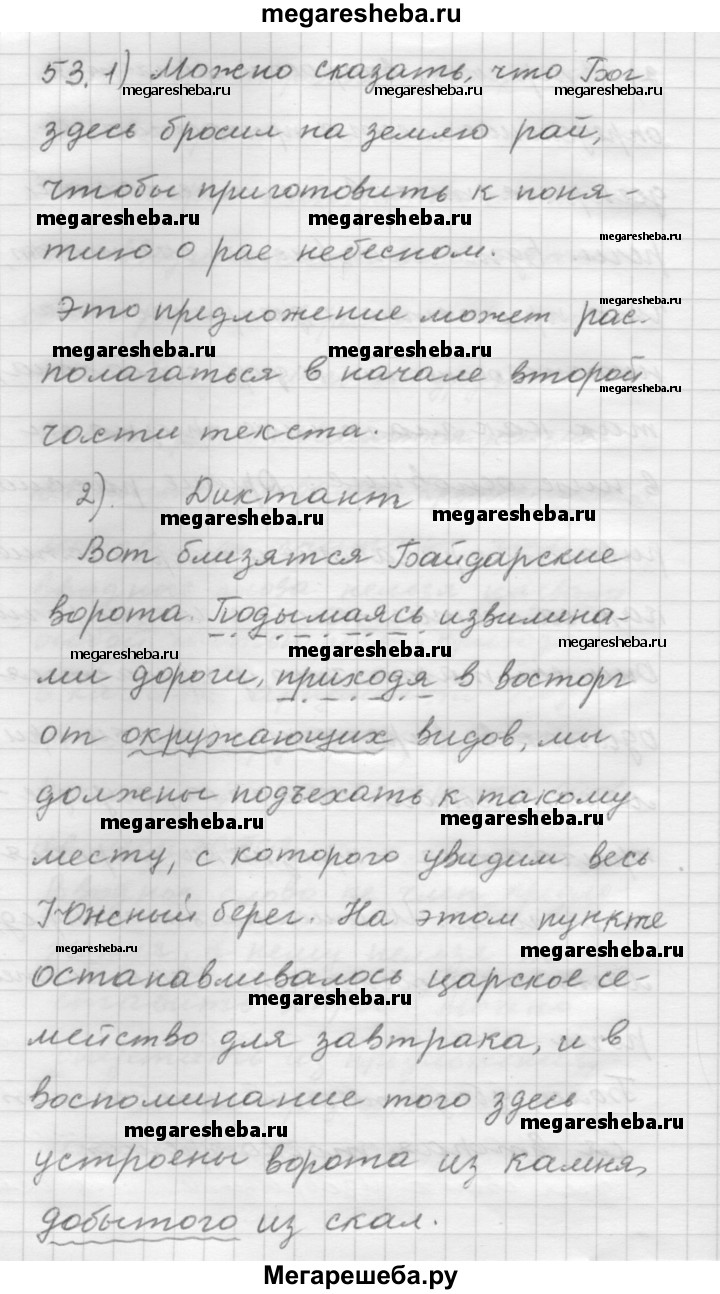 megaresheba.ru
53. 1) Можно сказать, что Бог
megaresheba.ru megaresheba.ru megaresheba.ru
здесь бросил на землю рай,
чтобы приготовить к поня-
megaresheba.ru megaresheba.ru megaresheba.ru
тию о рае небесном.
megaresheba.ru
Это предложение может рас-
megaresheba.ru megaresheba.ru
полагаться в начале второй
megaresheba.ru
части текста.
2). Диктант
megaresheba.ru megaresheba.ru
Вот близятся Байдарские
ворота. Подымаясь извилина-
megaresheba.ru megaresheba.ru megaresheba.ru
ми дороги, приходя в восторг
от окружающих видов, мы
должны подъехать к такому
megaresheba.ru megaresheba.ru
месту, с которого увидим весь
Южный берег. На этом пункте
megaresheba.ru megaresheba.ru
останавливалось царское се-
megaresheba.ru
мейство для завтрака, и в
воспоминание того здесь
megaresheba.ru megaresheba.ru
устроены ворота из камня,
добытого из скал.
Мегарешеба.ру